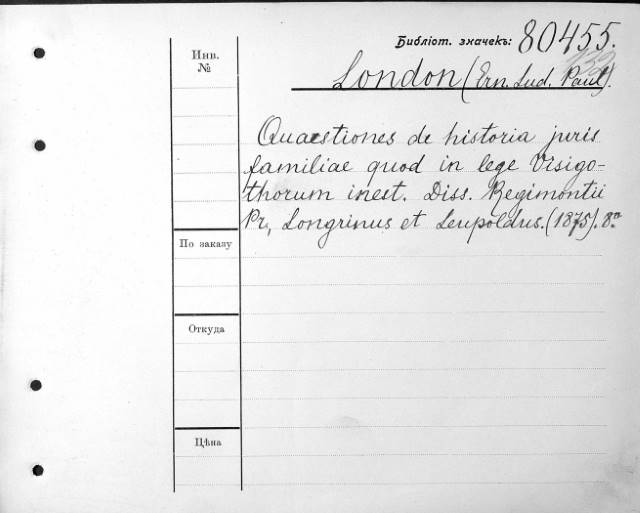 Библіот. значекъ: 80455.
Инв. №
London (Ern. Lud. Paul).
Quaestiones de historia juris
familiae quod in lege Visigo-
thorum inest. Diss. Regimontii
Pr., Longrinus et Leupoldus. (1875). 8º.
По заказу
Откуда
Цѣна